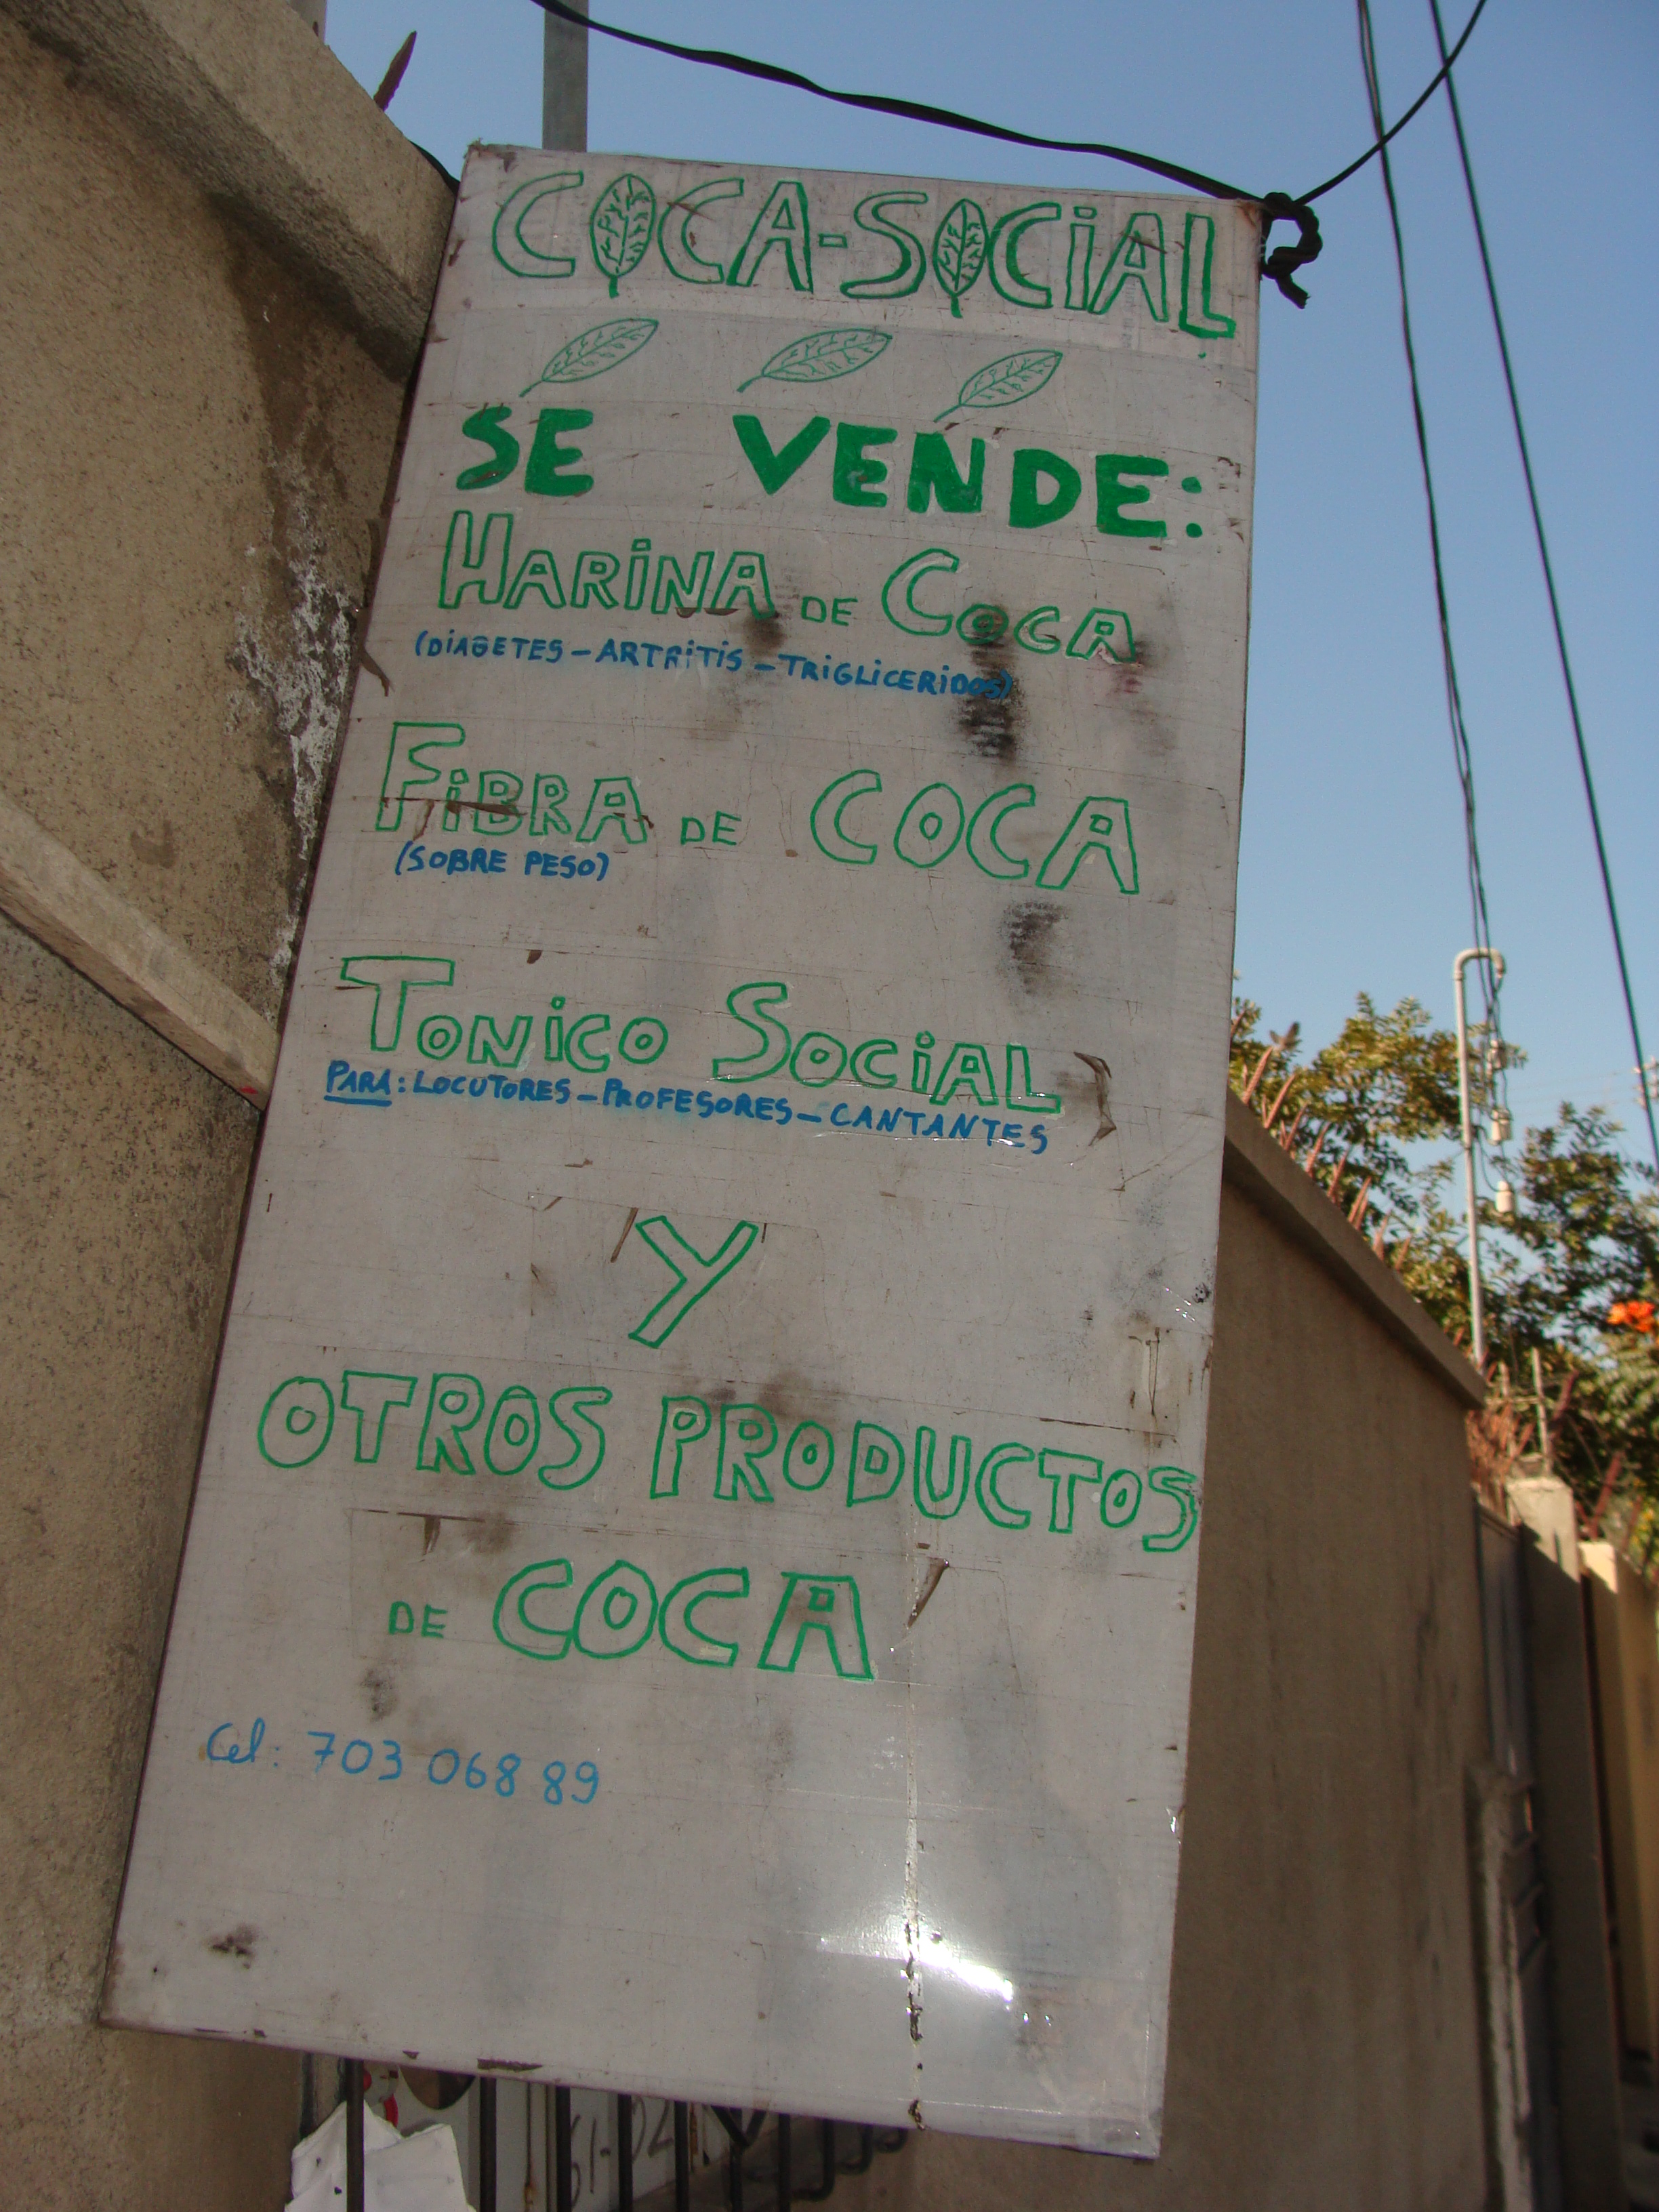 COCA-SOCIAL
SE VENDE:
HARINA DE COCA
(DIABETES - ARTRITIS - TRIGLICERIDOS)
FIBRA DE COCA
(SOBRE PESO)
TONICO SOCIAL
PARA: LOCUTORES - PROFESORES - CANTANTES
Y
OTROS PRODUCTOS
DE COCA
Cel: 703 068 89